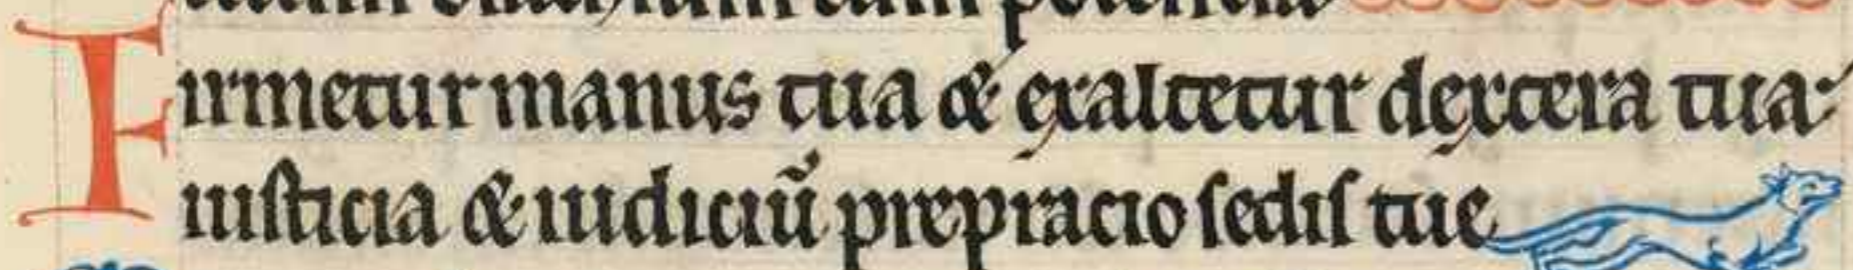 Firmetur manus tua & exaltetur dextera tua·
iuſticia & iudiciū prepracio ſediſ tue